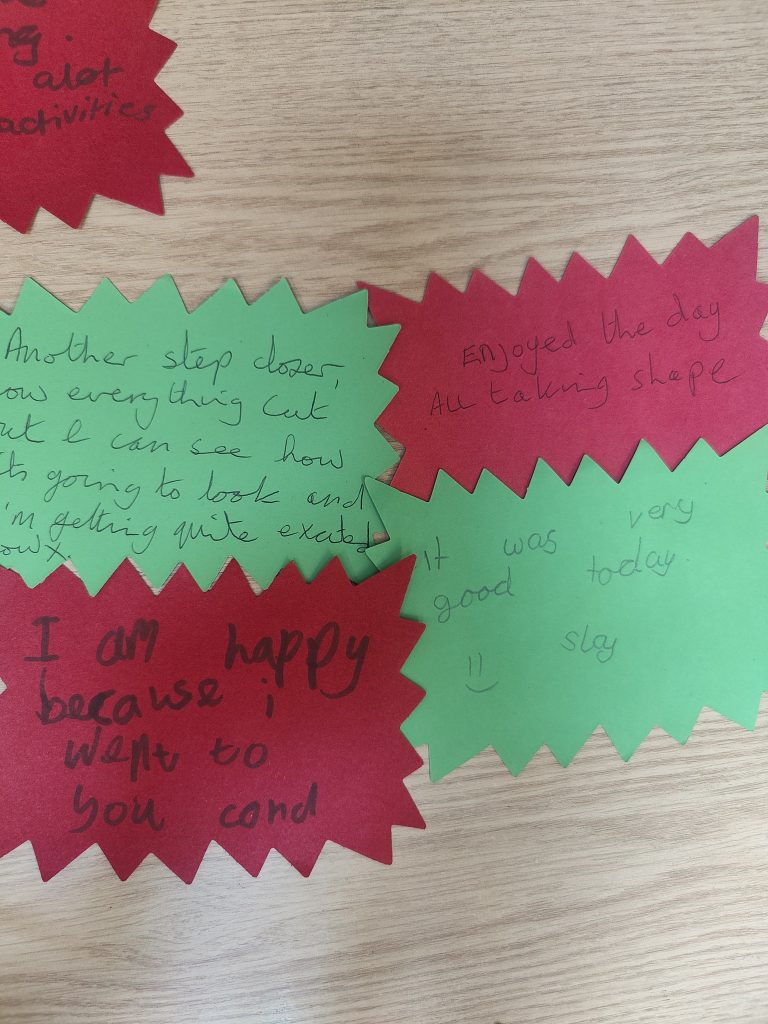 ng.
alot
activities
Another step closer,
now everything cut
out I can see how
its going to look and
I'm getting quite excited
now x.
Enjoyed the day
All taking shape
It was very
good today.
slay
I am happy
because i
went to
you cand